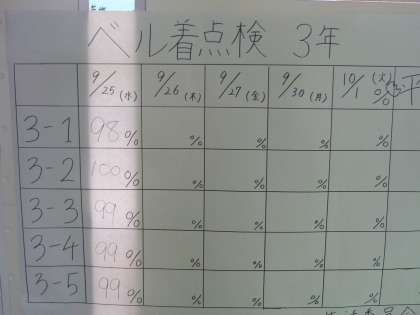 ベル着点検 3年
9/25(水) 9/26(木) 9/27(金) 9/30(月) 10/1(火)
3-1 98% % % % %
3-2 100% % % % %
3-3 99% % % % %
3-4 99% % % % %
3-5 99% % % % %